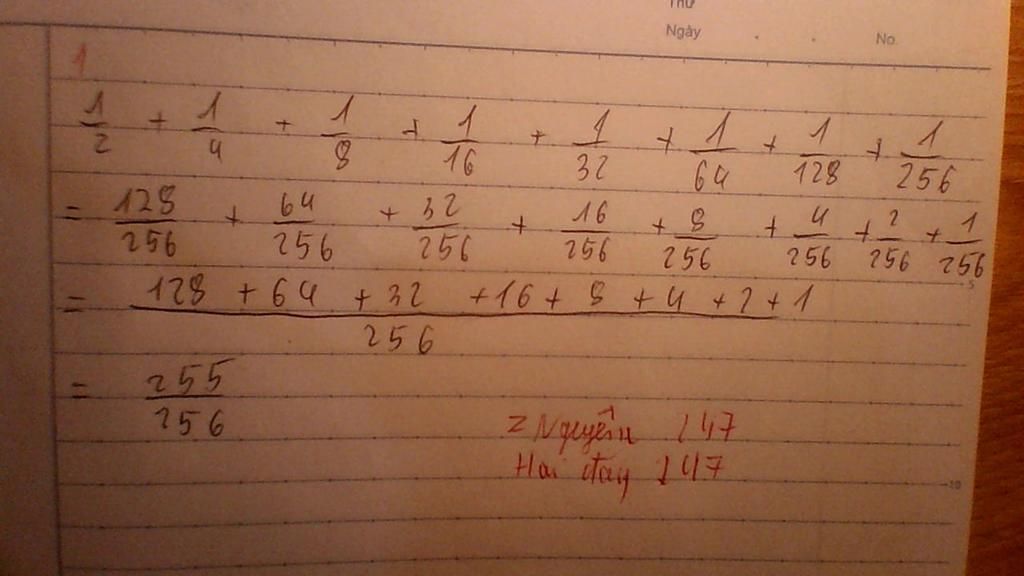 Thứ
Ngày . . No.
1
1/2 + 1/4 + 1/8 + 1/16 + 1/32 + 1/64 + 1/128 + 1/256
= 128/256 + 64/256 + 32/256 + 16/256 + 8/256 + 4/256 + 2/256 + 1/256
5
= (128 + 64 + 32 + 16 + 8 + 4 + 2 + 1)/256
= 255/256
Z Nguyễn 147
Hai đay 147
10